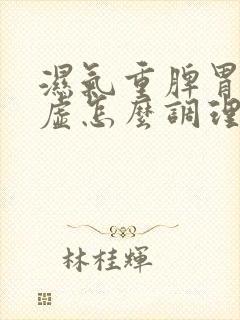 濕氣重脾胃
虛怎麼調理
林桂輝